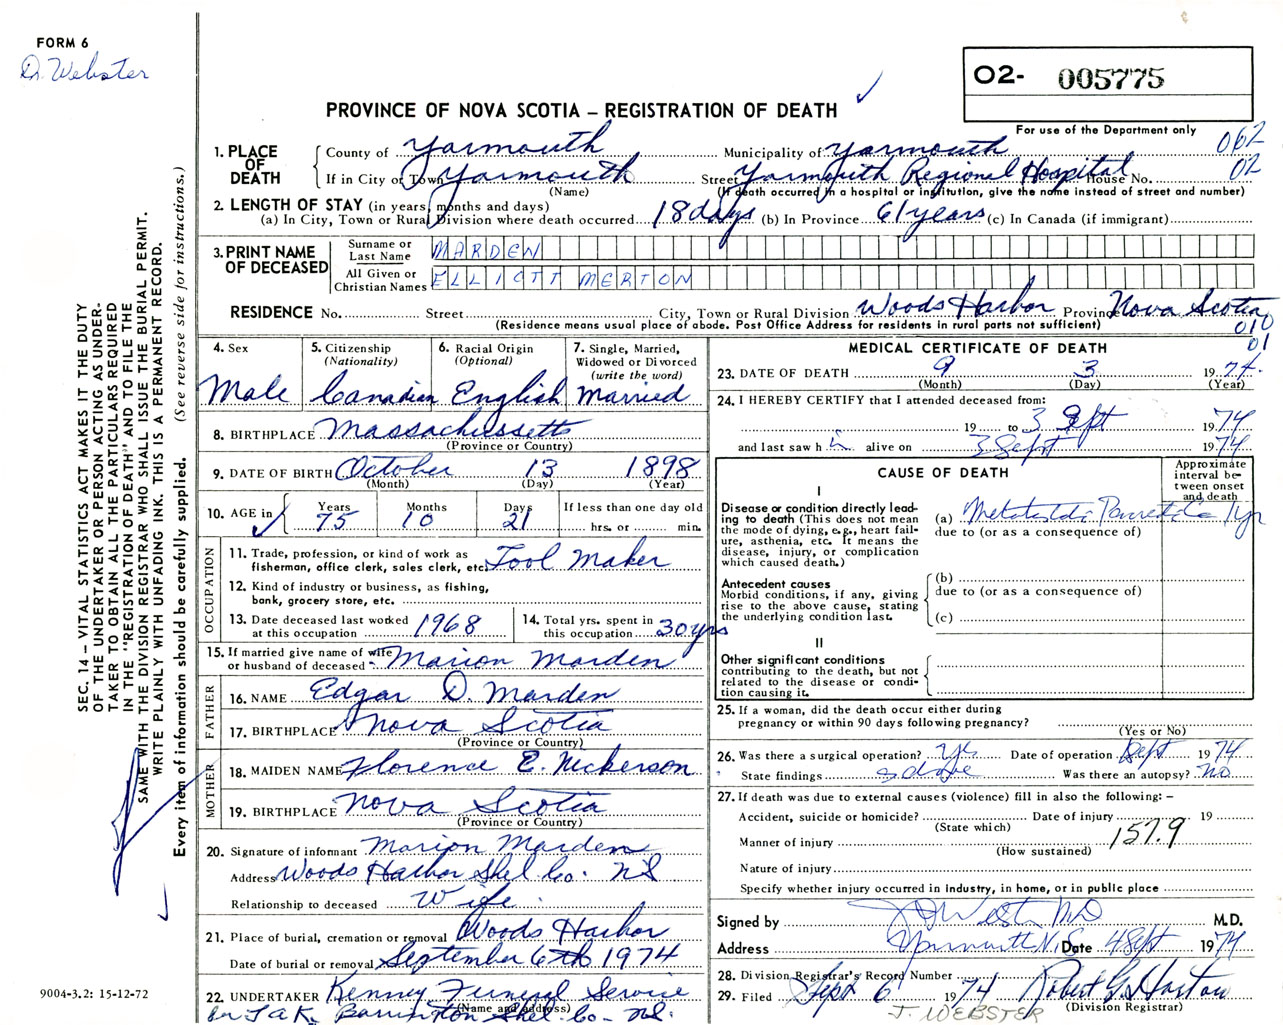 FORM 6
Dr. Webster
O2- 005775
PROVINCE OF NOVA SCOTIA – REGISTRATION OF DEATH
For use of the Department only
062
02
1. PLACE OF DEATH
County of Yarmouth Municipality of Yarmouth
If in City or Town Yarmouth Street Yarmouth Regional Hospital House No.
(Name) (If death occurred in a hospital or institution, give the name instead of street and number)
2. LENGTH OF STAY (in years, months and days)
(a) In City, Town or Rural Division where death occurred 18 days (b) In Province 61 years (c) In Canada (if immigrant)
3. PRINT NAME OF DECEASED
Surname or Last Name MARDEN
All Given or Christian Names ELLIOTT MERTON
RESIDENCE No. Street City, Town or Rural Division Woods Harbor Province Nova Scotia
(Residence means usual place of abode. Post Office Address for residents in rural parts not sufficient)
010
01
4. Sex Male
5. Citizenship (Nationality) Canadian
6. Racial Origin (Optional) English
7. Single, Married, Widowed or Divorced (write the word) Married
8. BIRTHPLACE Massachussetts
(Province or Country)
9. DATE OF BIRTH October 13 1898
(Month) (Day) (Year)
10. AGE in Years 75 Months 10 Days 21 If less than one day old hrs. or min.
OCCUPATION
11. Trade, profession, or kind of work as fisherman, office clerk, sales clerk, etc. Tool Maker
12. Kind of industry or business, as fishing, bank, grocery store, etc.
13. Date deceased last worked at this occupation 1968
14. Total yrs. spent in this occupation 30 yrs
15. If married give name of wife or husband of deceased - Marion Marden
FATHER
16. NAME Edgar D. Marden
17. BIRTHPLACE Nova Scotia
(Province or Country)
MOTHER
18. MAIDEN NAME Florence E. Nickerson
19. BIRTHPLACE Nova Scotia
(Province or Country)
20. Signature of informant Marion Marden
Address Woods Harbor Shel. Co. NS
Relationship to deceased Wife
21. Place of burial, cremation or removal Woods Harbor
Date of burial or removal September 6th 1974
22. UNDERTAKER Kenney Funeral Service
(Name and address)
Barrington Shel. Co. NS.
MEDICAL CERTIFICATE OF DEATH
23. DATE OF DEATH 9 3 1974
(Month) (Day) (Year)
24. I HEREBY CERTIFY that I attended deceased from:
19 to 3 Sept 1974
and last saw h alive on 3 Sept 1974
CAUSE OF DEATH
Approximate interval between onset and death
I
Disease or condition directly leading to death (This does not mean the mode of dying, e.g., heart failure, asthenia, etc. It means the disease, injury, or complication which caused death.)
(a) Ca 1 yr
due to (or as a consequence of)
Antecedent causes
Morbid conditions, if any, giving rise to the above cause, stating the underlying condition last.
(b)
due to (or as a consequence of)
(c)
II
Other significant conditions contributing to the death, but not related to the disease or condition causing it.
25. If a woman, did the death occur either during pregnancy or within 90 days following pregnancy?
(Yes or No)
26. Was there a surgical operation? Yes Date of operation Sept 1974
State findings as above Was there an autopsy? No
27. If death was due to external causes (violence) fill in also the following: –
Accident, suicide or homicide? Date of injury 19
(State which)
Manner of injury 157.9
(How sustained)
Nature of injury
Specify whether injury occurred in industry, in home, or in public place
Signed by Webster MD M.D.
Address Yarmouth N.S. Date 4 Sept 1974
28. Division Registrar's Record Number
29. Filed Sept 6 1974 Robert G. Horton
(Division Registrar)
J. WEBSTER
SEC. 14 – VITAL STATISTICS ACT MAKES IT THE DUTY
OF THE UNDERTAKER OR PERSON ACTING AS UNDER-
TAKER TO OBTAIN ALL THE PARTICULARS REQUIRED
IN THE "REGISTRATION OF DEATH" AND TO FILE THE
SAME WITH THE DIVISION REGISTRAR WHO SHALL ISSUE THE BURIAL PERMIT.
WRITE PLAINLY WITH UNFADING INK. THIS IS A PERMANENT RECORD.
Every item of information should be carefully supplied. (See reverse side for instructions.)
9004-3.2: 15-12-72